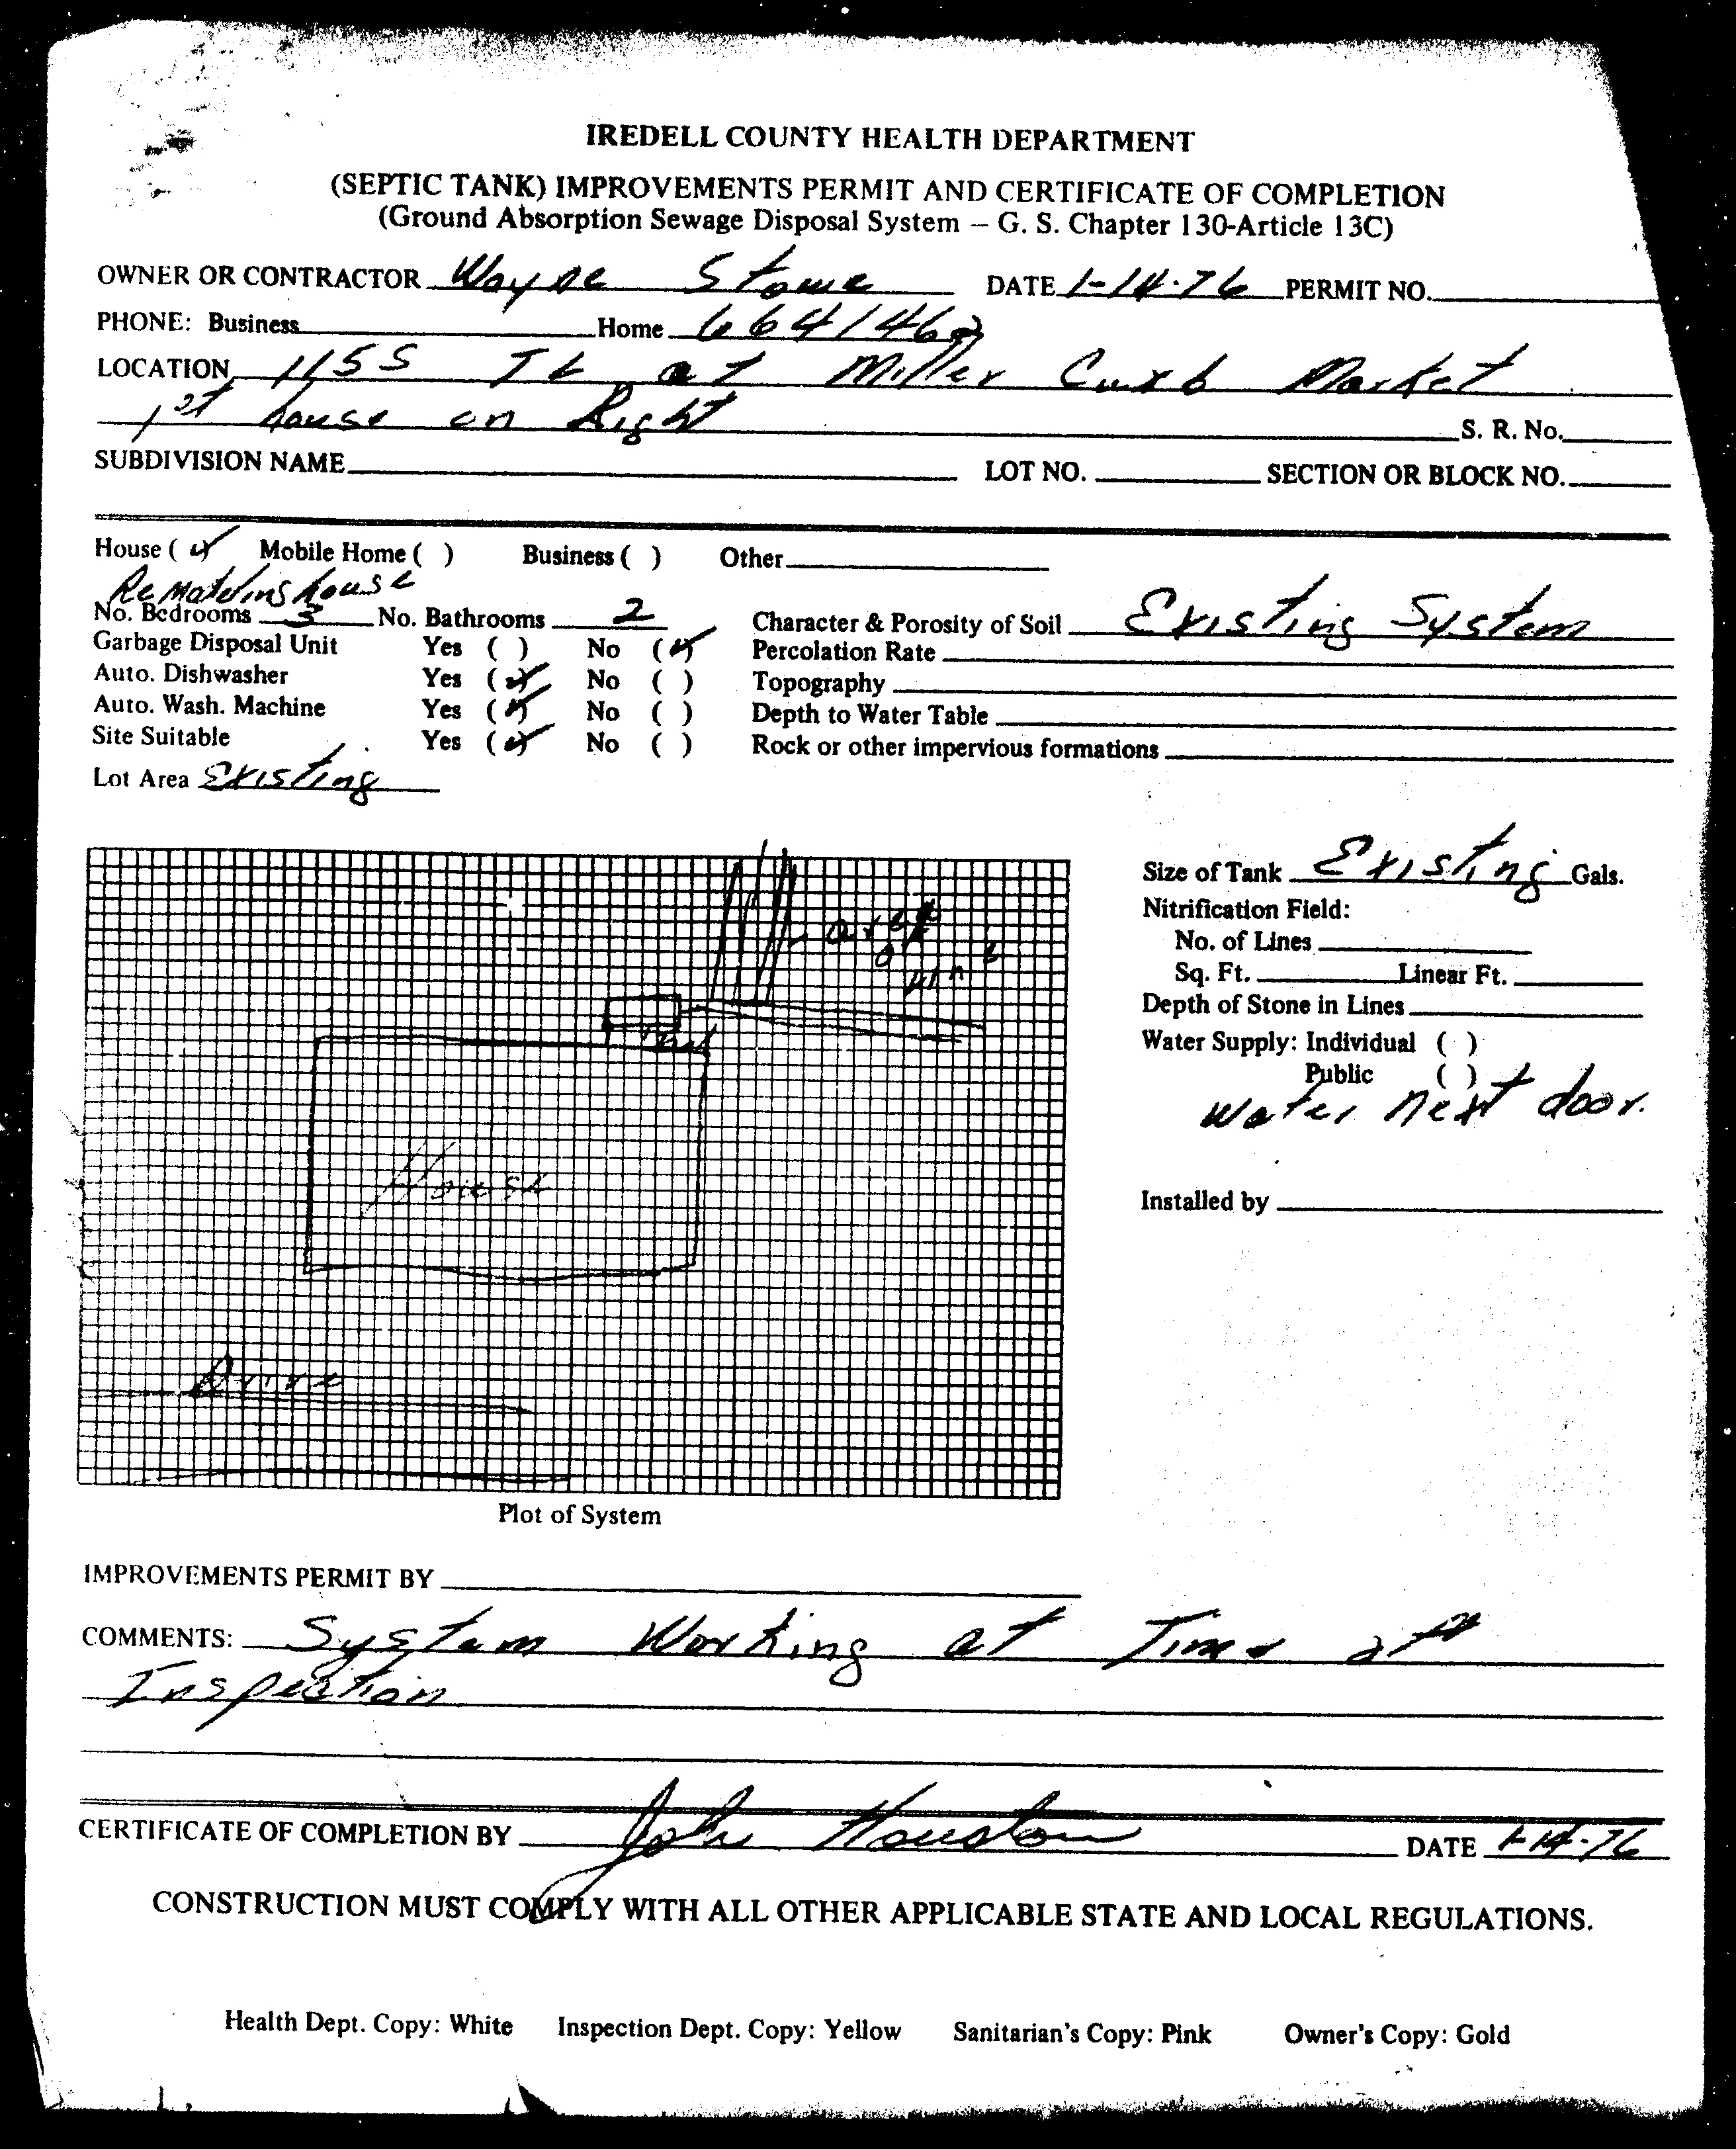 IREDELL COUNTY HEALTH DEPARTMENT
(SEPTIC TANK) IMPROVEMENTS PERMIT AND CERTIFICATE OF COMPLETION
(Ground Absorption Sewage Disposal System – G. S. Chapter 130-Article 13C)
OWNER OR CONTRACTOR Wayne Stowe DATE 1-14-76 PERMIT NO.
PHONE: Business Home 6641462
LOCATION 115S TL at Miller Curb Market
1st house on Right S. R. No.
SUBDIVISION NAME LOT NO. SECTION OR BLOCK NO.
House (✓) Mobile Home ( ) Business ( ) Other
house
No. Bedrooms 3 No. Bathrooms 2 Character & Porosity of Soil Existing System
Garbage Disposal Unit Yes ( ) No (✓) Percolation Rate
Auto. Dishwasher Yes (✓) No ( ) Topography
Auto. Wash. Machine Yes (✓) No ( ) Depth to Water Table
Site Suitable Yes (✓) No ( ) Rock or other impervious formations
Lot Area Existing
Size of Tank Existing Gals.
Nitrification Field:
No. of Lines
Sq. Ft. Linear Ft.
Depth of Stone in Lines
Water Supply: Individual ( )
Public ( )
Water next door.
Installed by
House
Drive
Plot of System
IMPROVEMENTS PERMIT BY
COMMENTS: System Working at Time of
Inspection
CERTIFICATE OF COMPLETION BY John Houston DATE 1-14-76
CONSTRUCTION MUST COMPLY WITH ALL OTHER APPLICABLE STATE AND LOCAL REGULATIONS.
Health Dept. Copy: White Inspection Dept. Copy: Yellow Sanitarian's Copy: Pink Owner's Copy: Gold